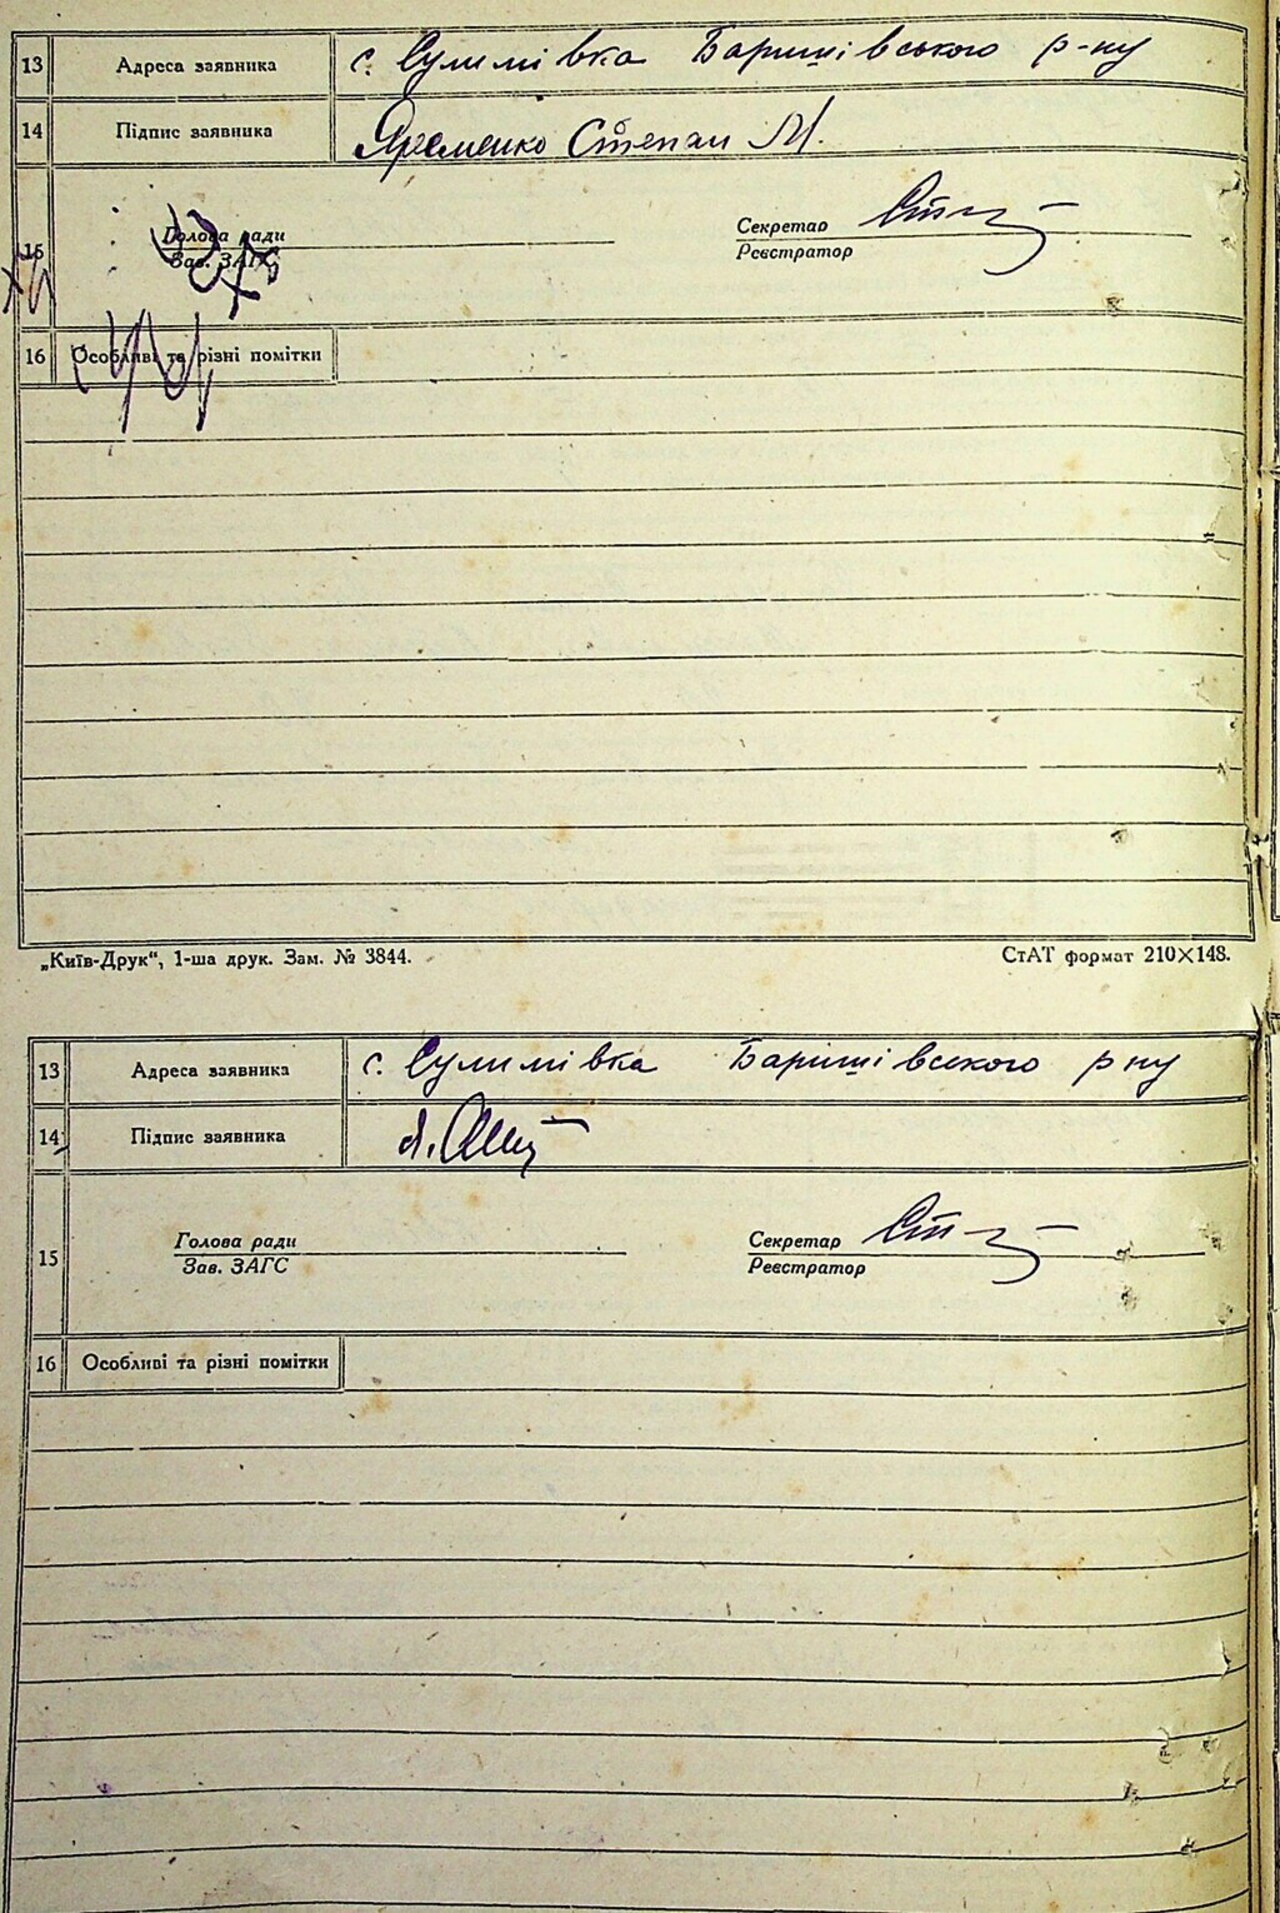 13 Адреса заявника с. Сулимівка Баришівського р-ну
14 Підпис заявника Яременко Степан М.
15 Голова ради Секретар
Зав. ЗАГС Реєстратор
16 Особливі та різні помітки
„Київ-Друк“, 1-ша друк. Зам. № 3844. СтАТ формат 210×148.
13 Адреса заявника с. Сулимівка Баришівського р ну
14 Підпис заявника
15 Голова ради Секретар
Зав. ЗАГС Реєстратор
16 Особливі та різні помітки